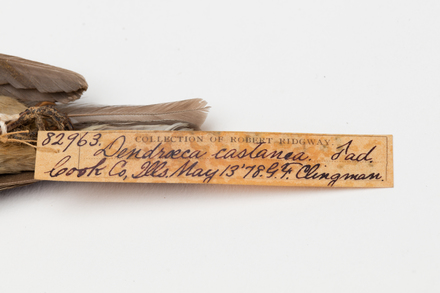 COLLECTION OF ROBERT RIDGWAY.
82963. Dendrœca castanea. ♀ad.
Cook Co, Ills. May 13'78. G.F. Clingman.